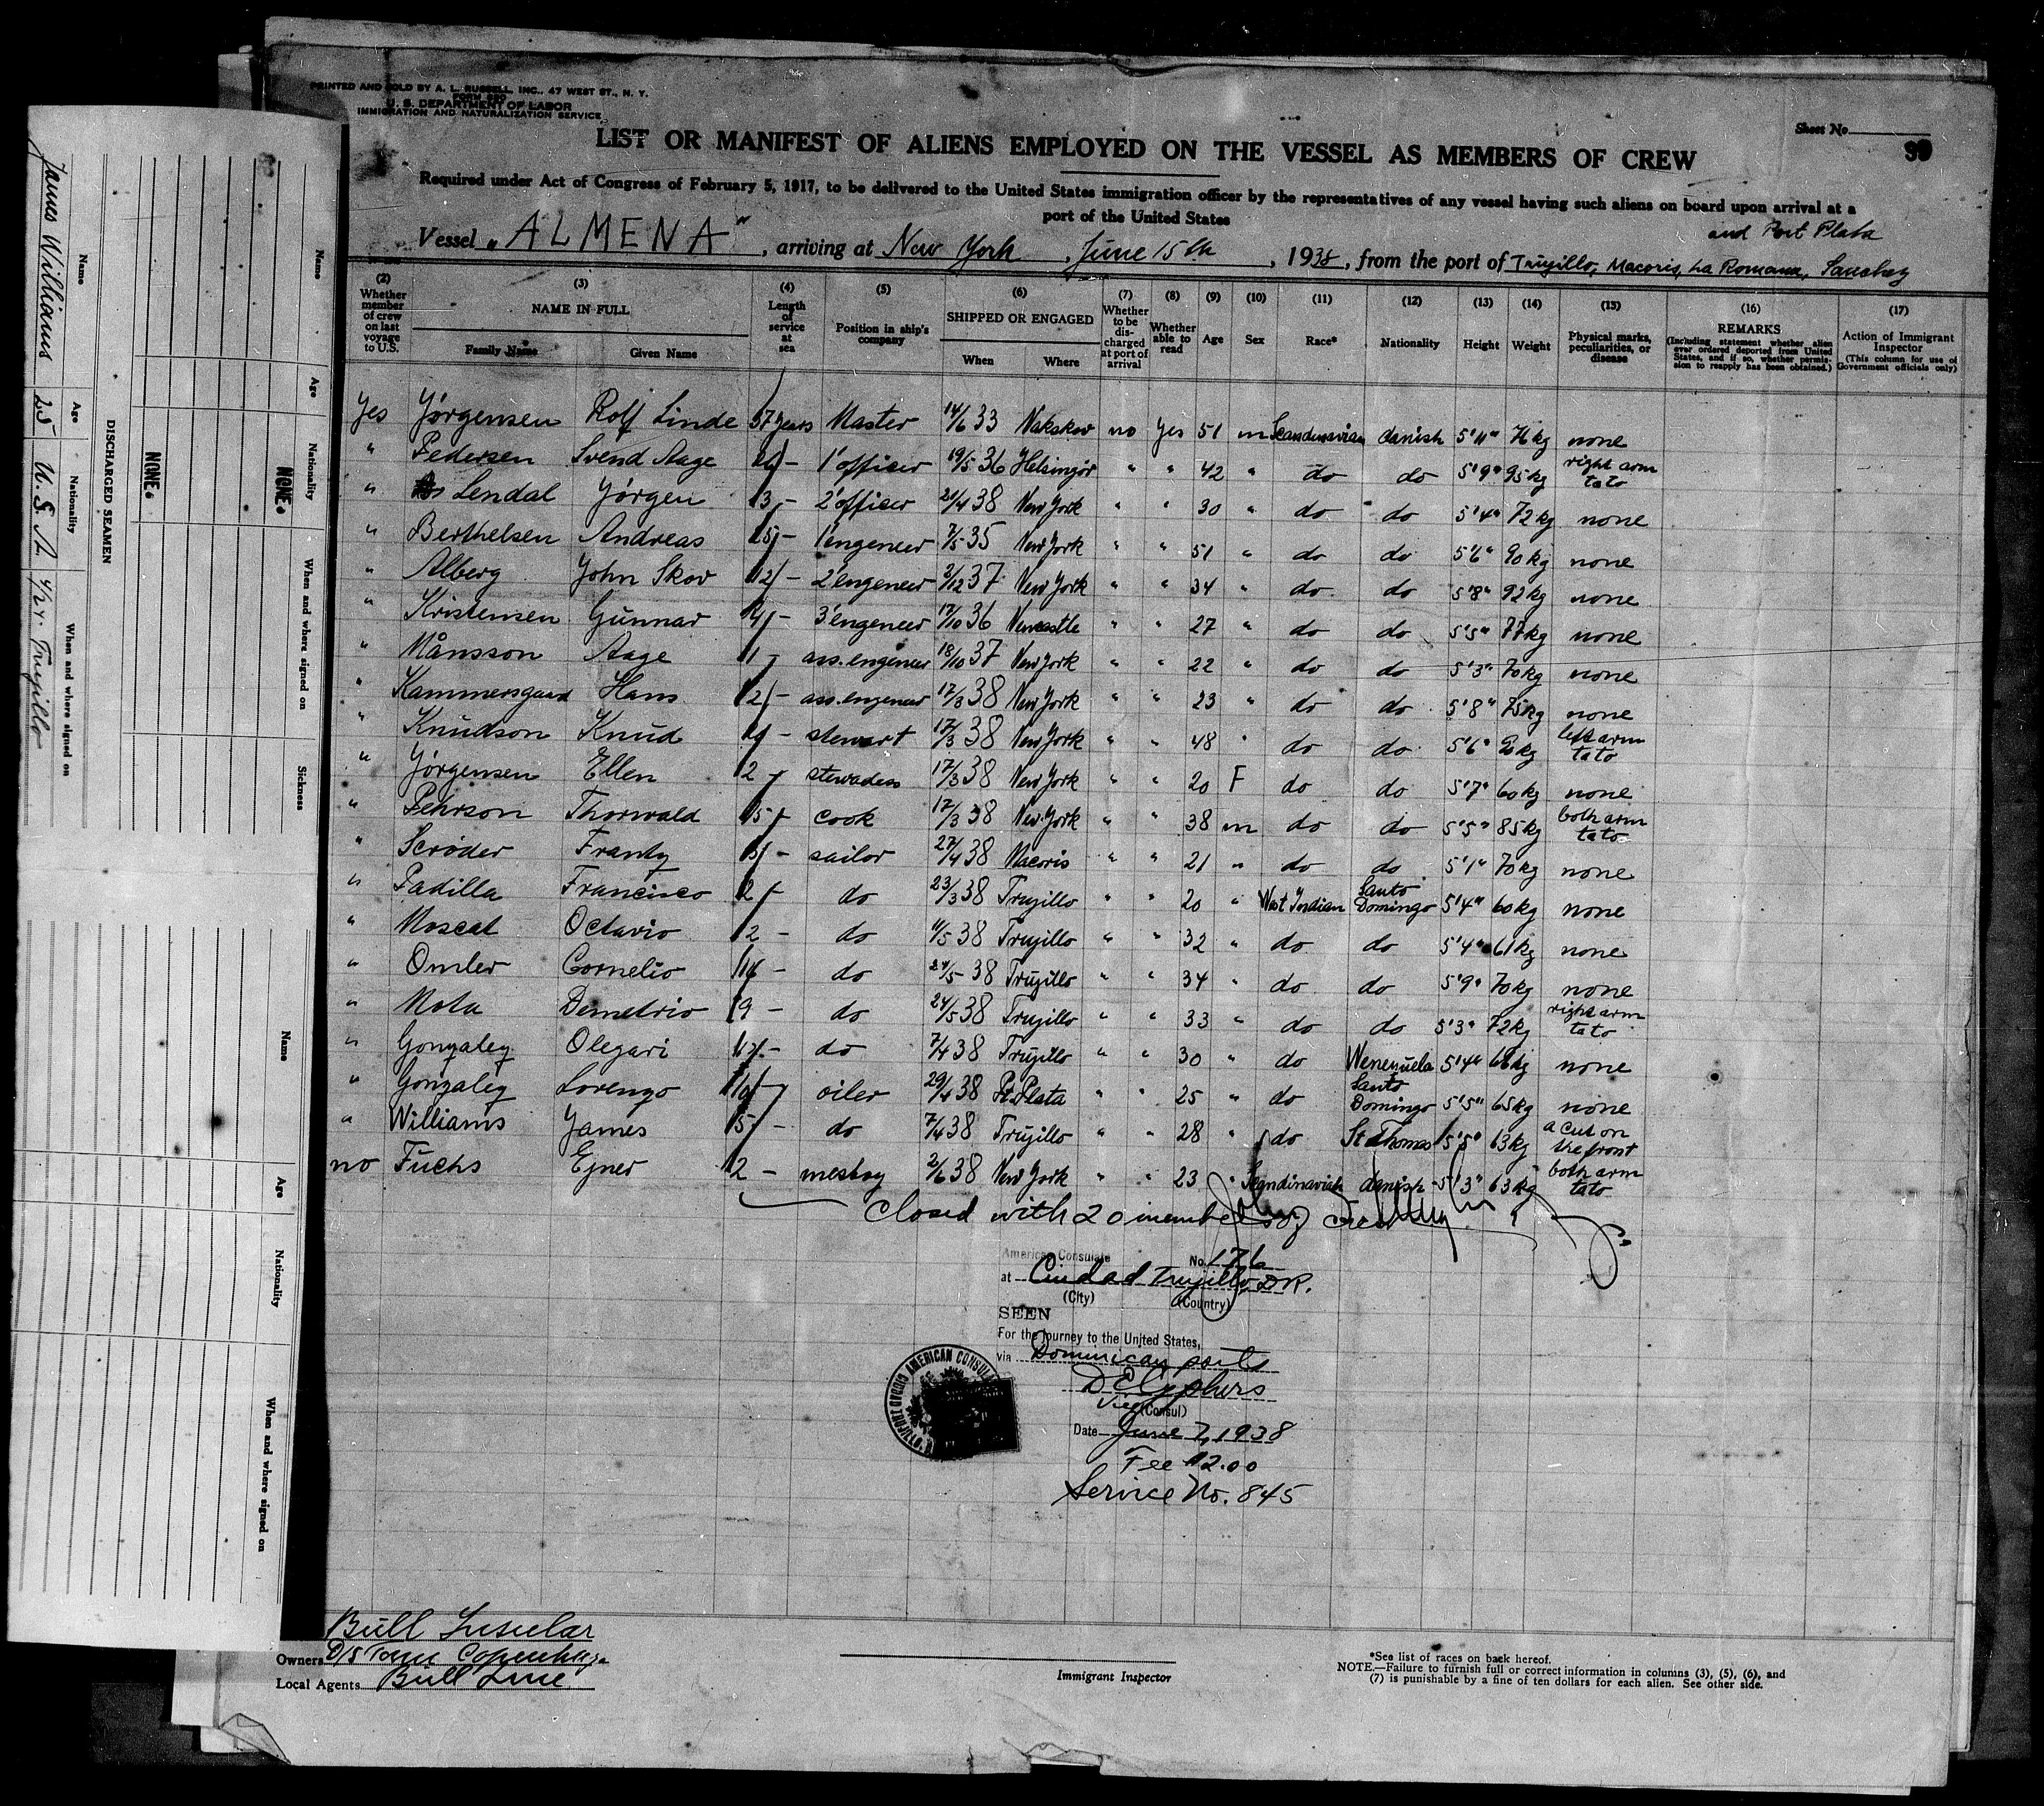 PRINTED AND SOLD BY A. L. RUSSELL, INC., 47 WEST ST., N. Y.
U. S. DEPARTMENT OF LABOR
IMMIGRATION AND NATURALIZATION SERVICE
Sheet No.
LIST OR MANIFEST OF ALIENS EMPLOYED ON THE VESSEL AS MEMBERS OF CREW
Required under Act of Congress of February 5, 1917, to be delivered to the United States immigration officer by the representatives of any vessel having such aliens on board upon arrival at a
port of the United States
and Port Plata
Vessel "ALMENA", arriving at New York, June 15th, 1938, from the port of Trujillo, Macoris, La Romana, Sanchez
(2) (3) (4) (5) (6) (7) (8) (9) (10) (11) (12) (13) (14) (15) (16) (17)
Whether member of crew on last voyage to U.S. NAME IN FULL Family Name Given Name Length of service at sea Position in ship's company SHIPPED OR ENGAGED When Where Whether to be discharged at port of arrival Whether able to read Age Sex Race* Nationality Height Weight Physical marks, peculiarities, or disease REMARKS (Including statement whether alien ever ordered deported from United States, and if so, whether permission to reapply has been obtained.) Action of Immigrant Inspector (This column for use of Government officials only)
Yes Jørgensen Rolf Linde 37 years Master 14/6 33 Nakskov no yes 51 m Scandinavian danish 5'11" 76 kg none
" Pedersen Svend Aage - 1' officer 19/5 36 Helsingör " " 42 " do do 5'9" 95 kg right arm tato
" Lendal Jørgen 13 - 2' officer 21/4 38 New York " " 30 " do do 5'4" 72 kg none
" Berthelsen Andreas - 1' engeneer 7/5 35 New York " " 51 " do do 5'6" 90 kg none
" Alberg John Skov 12 - 2' engeneer 3/12 37 New York " " 34 " do do 5'8" 92 kg none
" Kristensen Gunnar - 3' engeneer 17/10 36 Newcastle " " 27 " do do 5'5" 77 kg none
" Månsson Aage 1 - ass. engeneer 18/10 37 New York " " 22 " do do 5'3" 70 kg none
" Kammersgaard Hans 2 - ass. engeneer 17/3 38 New York " " 23 " do do 5'8" 75 kg none
" Knudson Knud - stewart 17/3 38 New York " " 48 " do do 5'6" 90 kg left arm tato
" Jørgensen Ellen 2 - stewadess 17/3 38 New York " " 20 F do do 5'7" 60 kg none
" Pehrson Thorwald - cook 17/3 38 New York " " 38 m do do 5'5" 85 kg both arm tato
" Scrøder Frantz - sailor 27/4 38 Macoris " " 21 " do do 5'1" 70 kg none
" Padilla Francisco 2 - do 23/3 38 Trujillo " " 20 " West Indian Santo Domingo 5'4" 60 kg none
" Moscat Octavio 2 - do 11/5 38 Trujillo " " 32 " do do 5'4" 61 kg none
" Omler Cornelio - do 24/5 38 Trujillo " " 34 " do do 5'9" 70 kg none
" Mota Demetrio 9 - do 24/5 38 Trujillo " " 33 " do do 5'3" 72 kg right arm tato
" Gonzalez Olegari - do 7/4 38 Trujillo " " 30 " do Wenezuela 5'4" 68 kg none
" Gonzalez Lorenzo oiler 29/4 38 Pt. Plata " " 25 " do Santo Domingo 5'5" 65 kg none
" Williams James 5 - do 7/4 38 Trujillo " " 28 " do St Thomas 5'5" 63 kg a cut on the front
no Fuchs Ejner 2 - mesboy 2/6 38 New York " " 23 " Scandinavian danish 5'3" 63 kg both arm tato
Closed with 20 members of crew
American Consulate No. 176
at Ciudad Trujillo, D.R.
(City) (Country)
SEEN
For the journey to the United States,
via Dominican ports
Vice (Consul)
Date June 7, 1938
Fee $2.00
Service No. 845
AMERICAN CONSULATE CIUDAD TRUJILLO
Bull Insular
Owners D/S Torm Copenhagen
Local Agents Bull Line
Immigrant Inspector
*See list of races on back hereof.
NOTE.—Failure to furnish full or correct information in columns (3), (5), (6), and
(7) is punishable by a fine of ten dollars for each alien. See other side.
DISCHARGED SEAMEN
Name Age Nationality When and where signed on
James Williams 25 U.S.A. 4/24 Trujillo
Name Age Nationality When and where signed on Sickness
NONE.
NONE.
Name Age Nationality When and where signed on